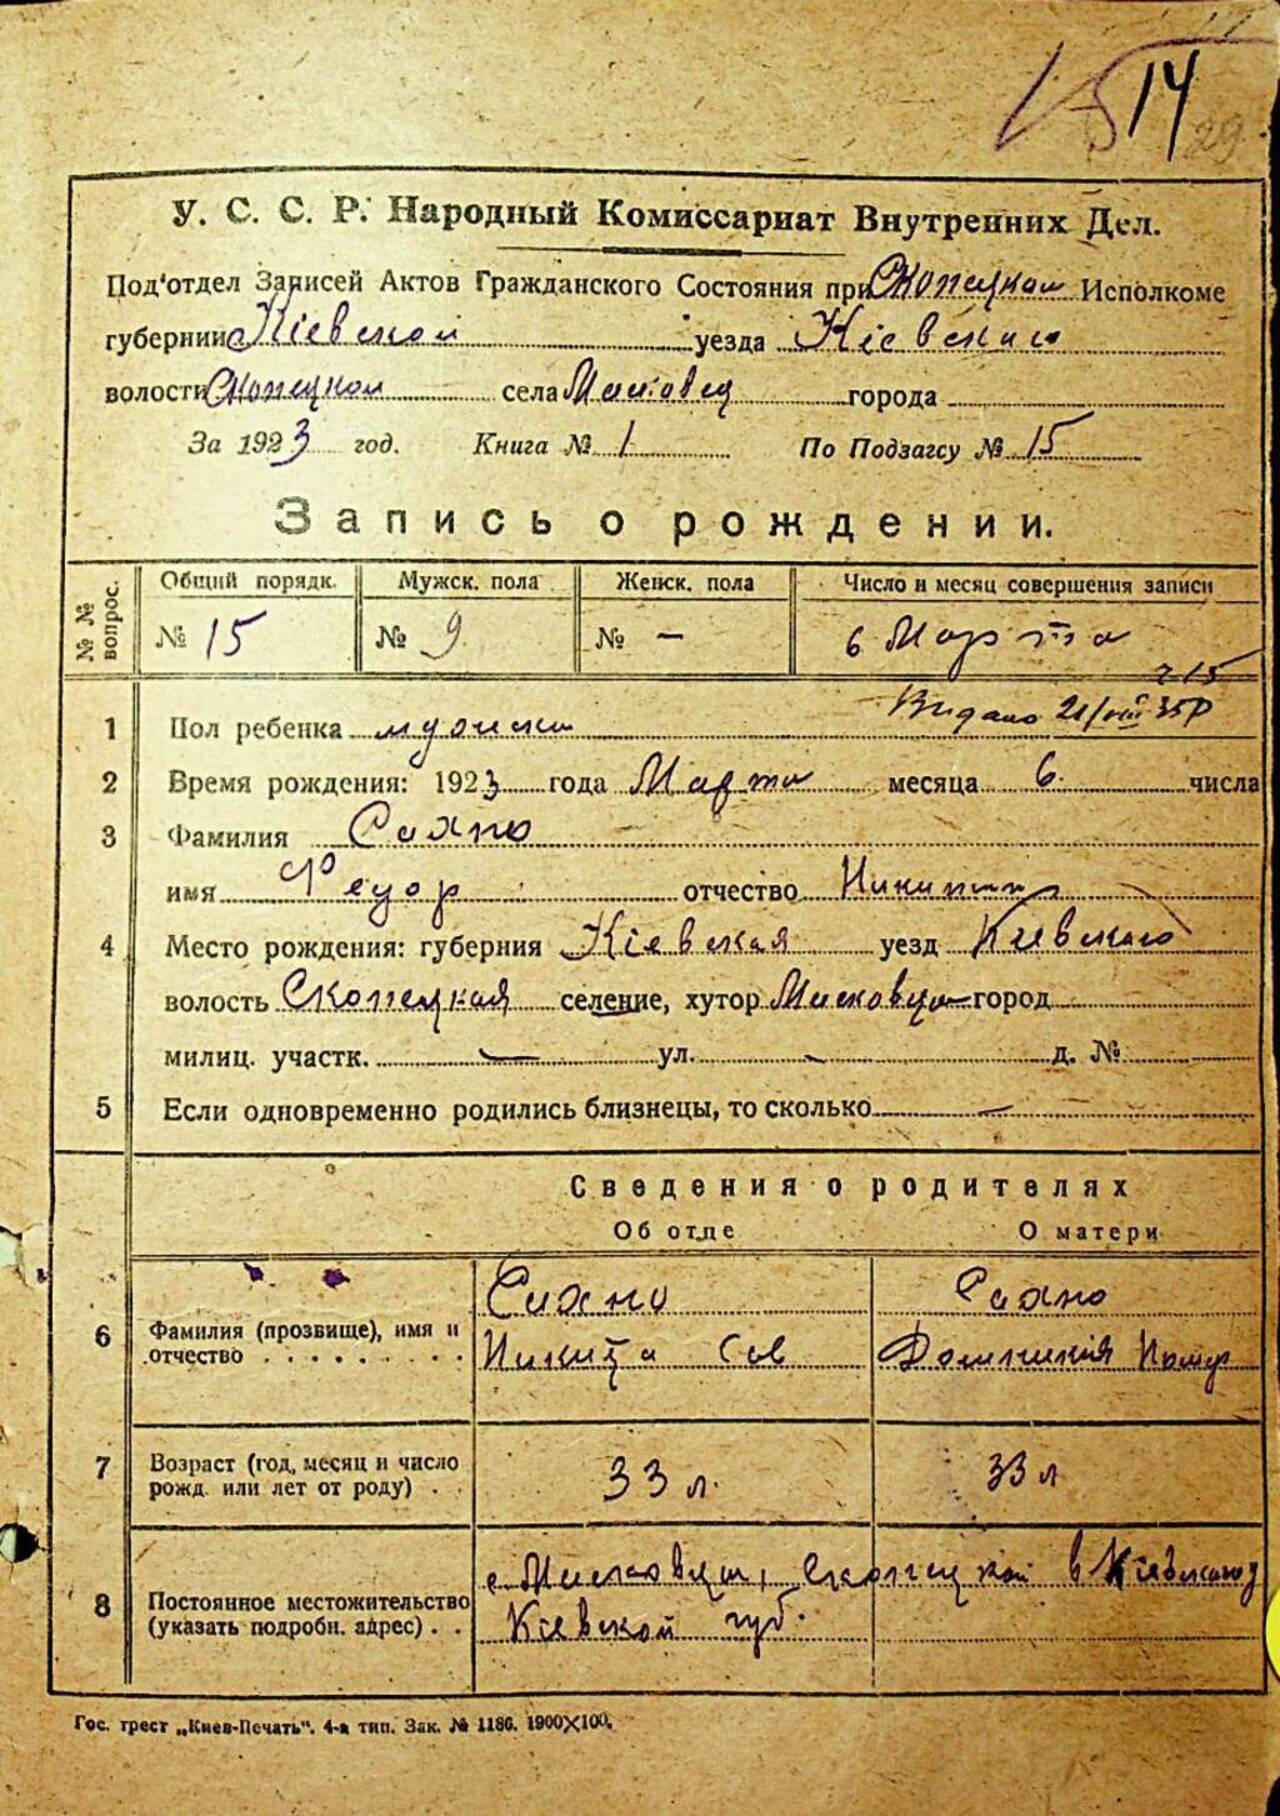 14
29
У. С. С. Р. Народный Комиссариат Внутренних Дел.
Под'отдел Записей Актов Гражданского Состояния при Скопецком Исполкоме
губернии Кіевской уезда Кіевского
волости Скопецкой села города
За 1923 год. Книга № 1 По Подзагсу № 15
Запись о рождении.
№ № вопрос. Общий порядк. Мужск. пола Женск. пола Число и месяц совершения записи
№ 15 № 9 № — 6 Марта
Видано 21/VIII 35 р
1 Пол ребенка
2 Время рождения: 1923 года Марта месяца 6 числа
3 Фамилия
имя Федор отчество
4 Место рождения: губерния Кіевская уезд Кіевского
волость Скопецкая селение, хутор город
милиц. участк. — ул. - д. №
5 Если одновременно родились близнецы, то сколько —
Сведения о родителях
Об отце О матери
6 Фамилия (прозвище), имя и отчество
Никита Сав
7 Возраст (год, месяц и число рожд. или лет от роду) . . 33 л. 33 л
8 Постоянное местожительство (указать подробн. адрес) . .
Кіевской губ.
Гос. трест „Киев-Печать". 4-я тип. Зак. № 1186. 1900×100.